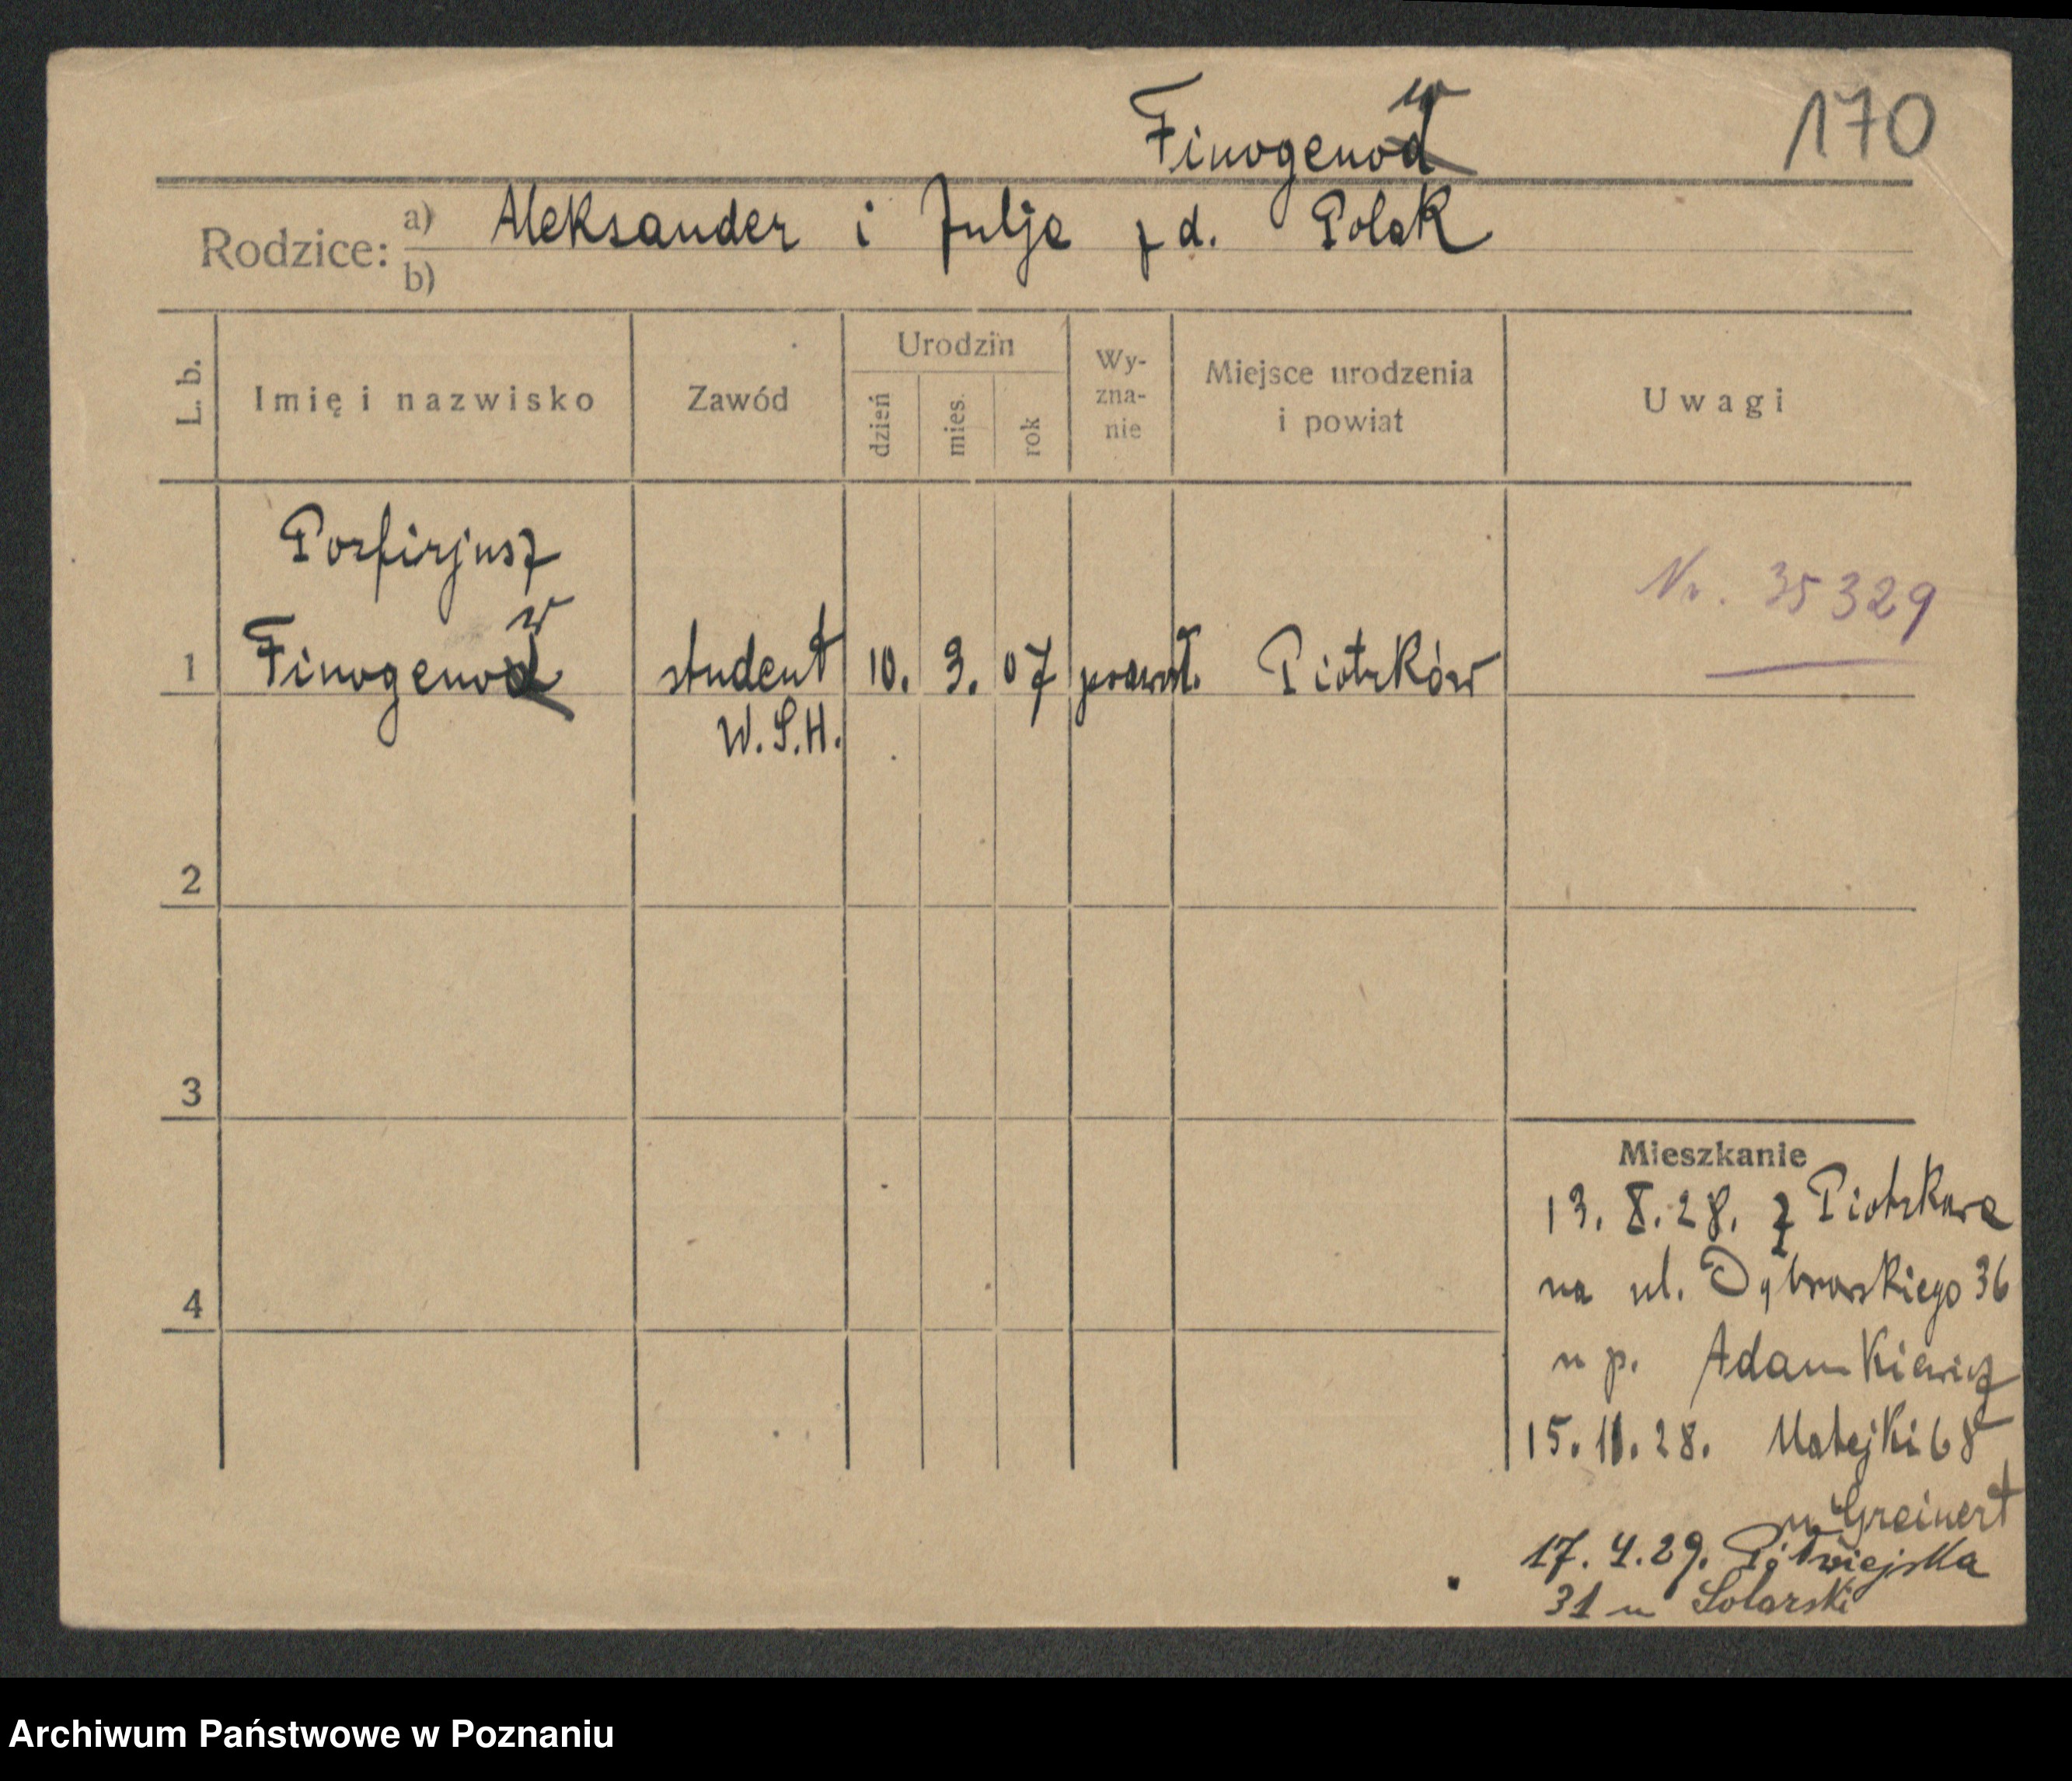 Finogenow
170
Rodzice: a) Aleksander i Julja z d. Polak
b)
L. b.
Imię i nazwisko
Zawód
Urodzin
dzień
mies.
rok
Wy-
zna-
nie
Miejsce urodzenia
i powiat
Uwagi
Porfirjusz
Nr. 35329
1 Finogenow student 10. 3. 07 prawosł. Piotrków
W.S.H.
2
3
4
Mieszkanie
13. X. 28. z Piotrkowa
na ul. Dąbrowskiego 36
u p. Adamkiewicz
15. 11. 28. Matejki 68
u Greinert
17. 4. 29. Półwiejska
31 u Solarski
Archiwum Państwowe w Poznaniu